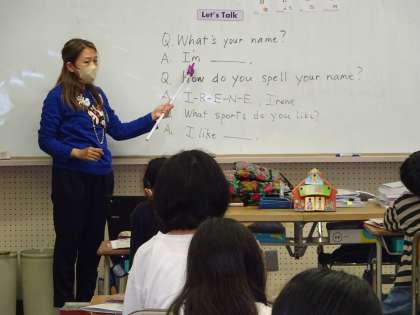 Let's Talk
Q. What's your name?
A. I'm ____.
Q. How do you spell your name?
A. I-R-E-N-E, Irene
What sports do you like?
A. I like ____.